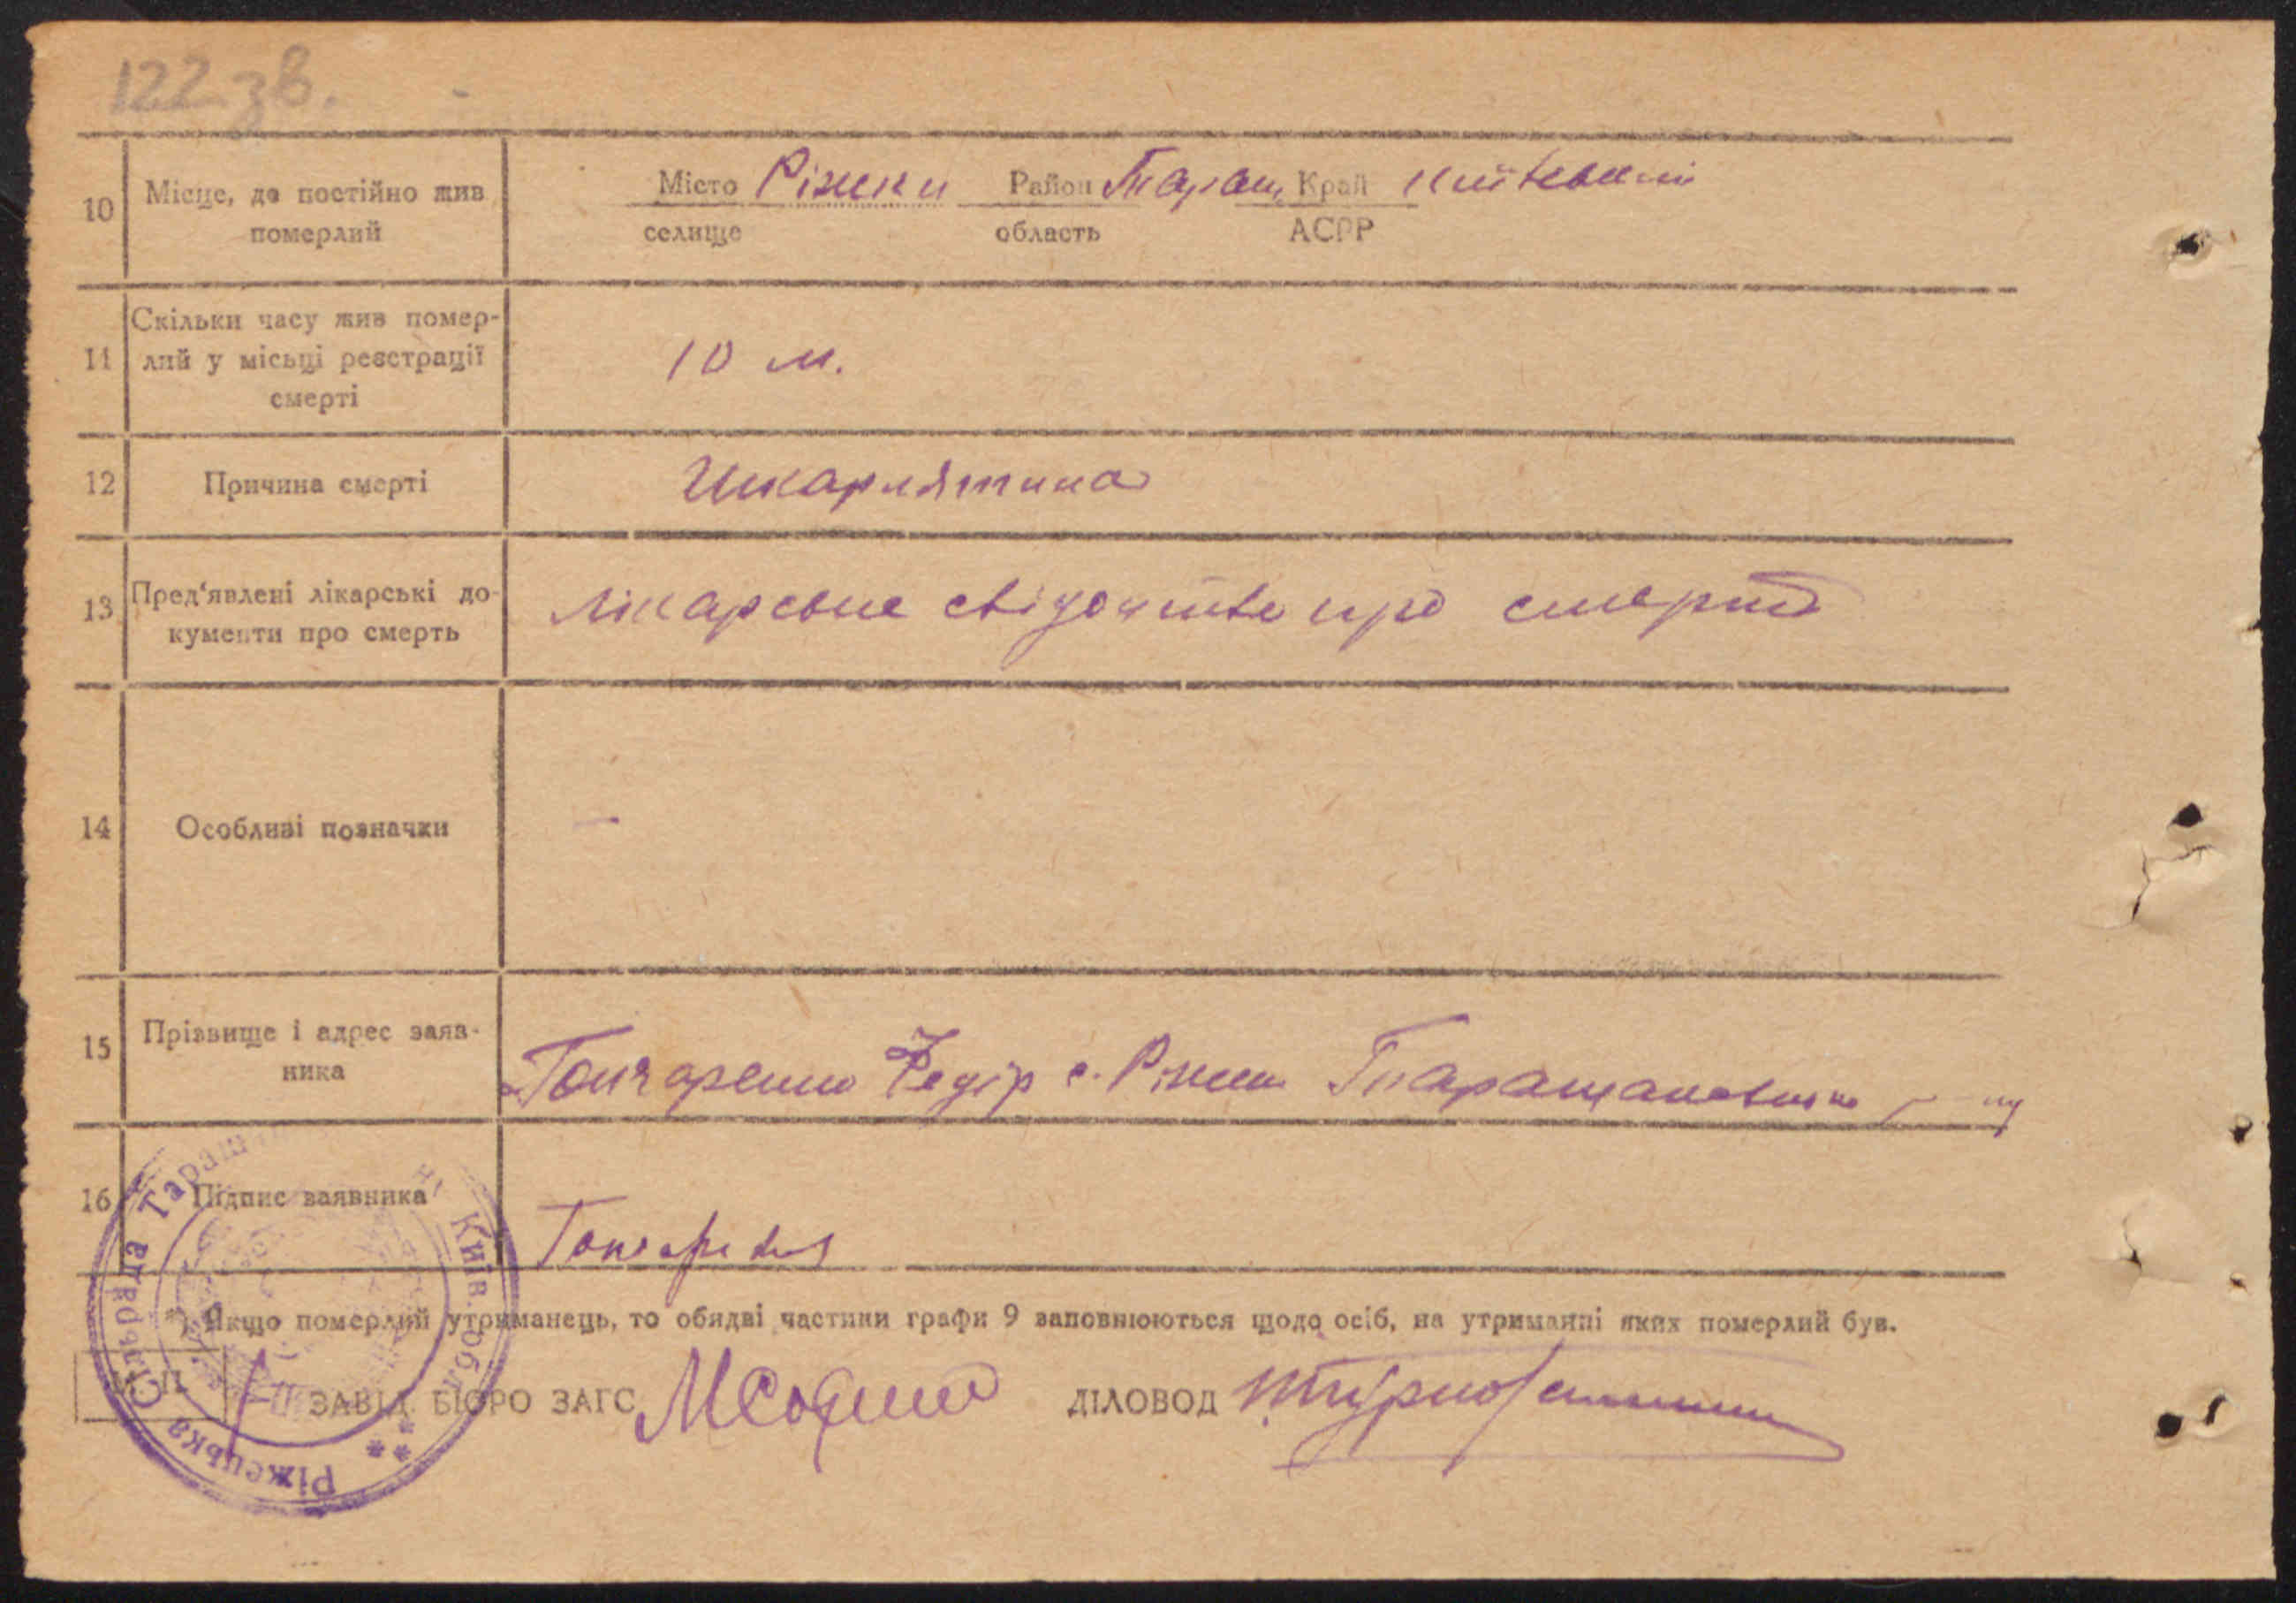 122 зв.
10 Місце, де постійно жив померлий
Місто Ріжки Район Таращ. Край Київський
селище область АСРР
11 Скільки часу жив помер-
лий у місьці реєстрації
смерті
10 м.
12 Причина смерті Шкарлятина
13 Пред‘явлені лікарські до-
кументи про смерть
лікарське свідоцтво про смерть
14 Особливі позначки —
15 Прізвище і адрес заяв-
ника
Гончаренко Федір с. Ріжки Таращанського р-ну
16 Підпис заявника
Гончаренко
*) Якщо померлий утриманець, то обидві частини графи 9 заповнюються щодо осіб, на утриманні яких померлий був.
ЗАВІД. БЮРО ЗАГС ДІЛОВОД
Ріжецька Сільрада Таращ Київ. обл.